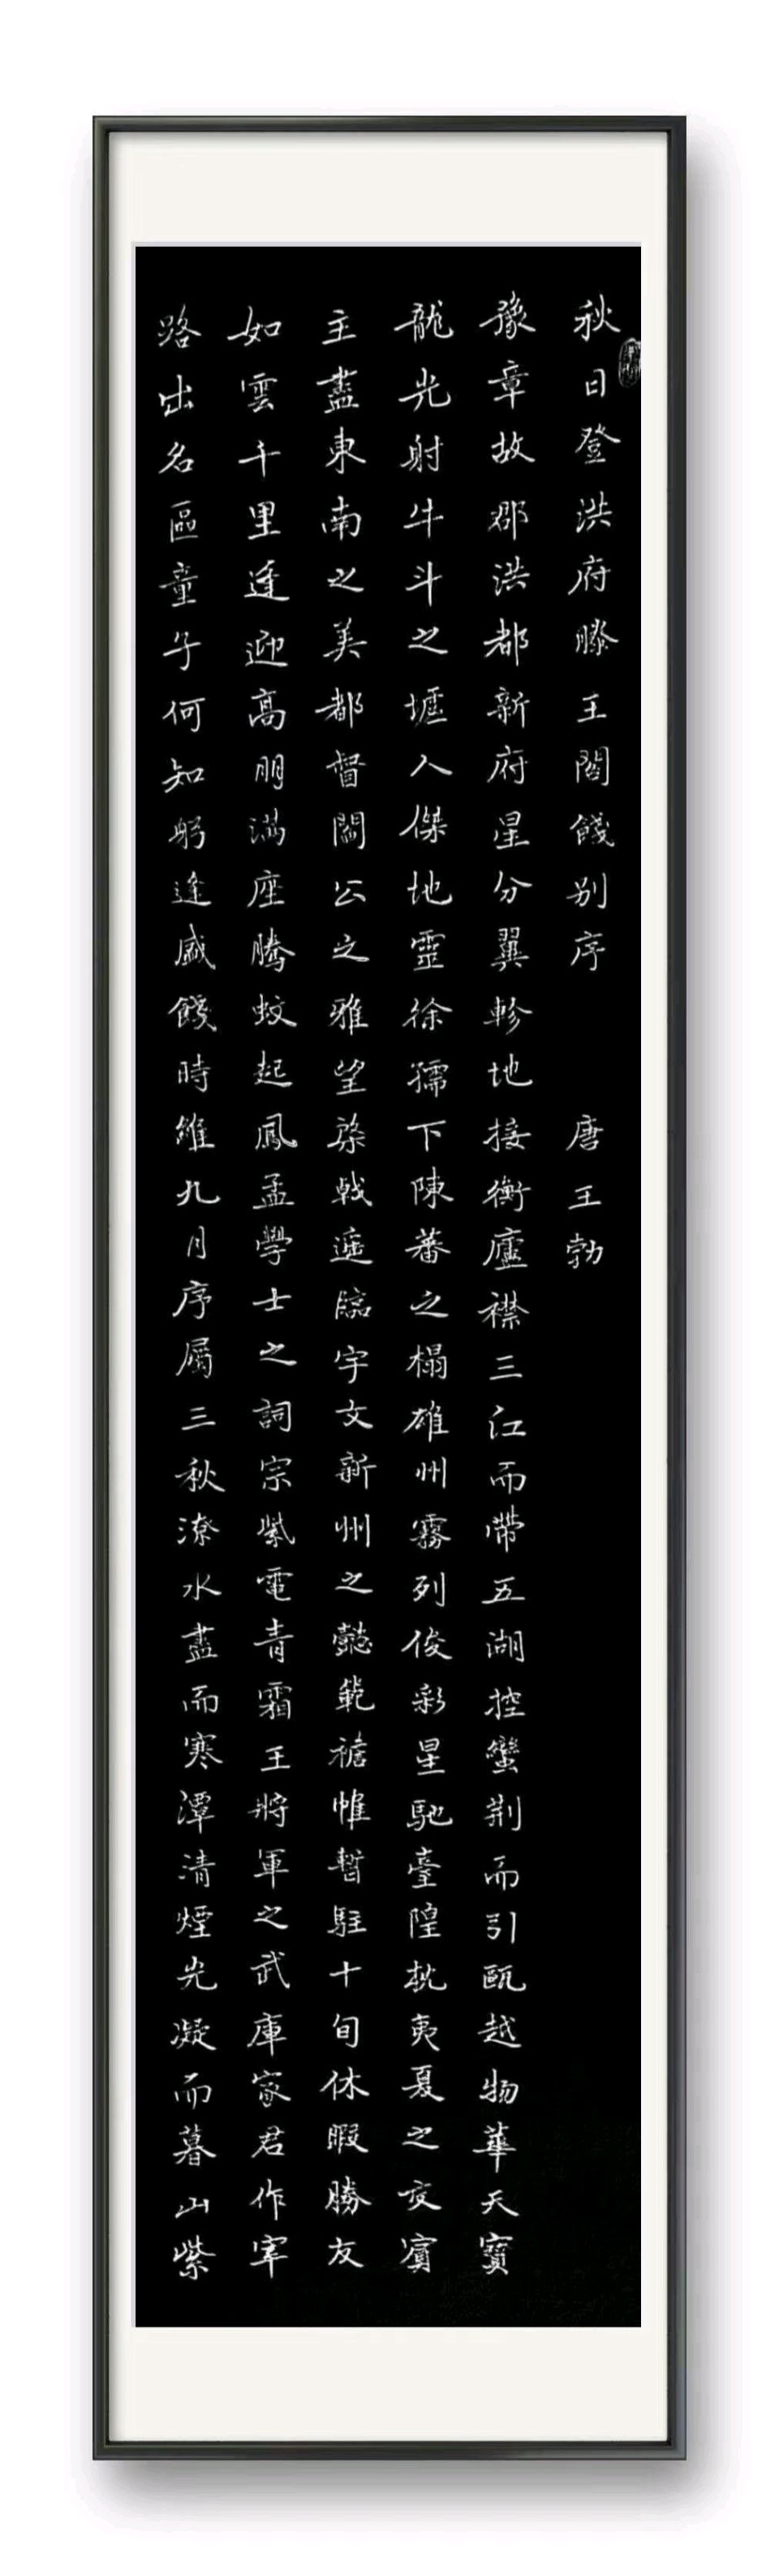 秋日登洪府滕王閣餞別序 唐王勃
豫章故郡洪都新府星分翼軫地接衡廬襟三江而帶五湖控蠻荆而引甌越物華天寶
龍光射牛斗之墟人傑地靈徐孺下陳蕃之榻雄州霧列俊彩星馳臺隍枕夷夏之交賓
主盡東南之美都督閻公之雅望棨戟遥臨宇文新州之懿範襜帷暫駐十旬休暇勝友
如雲千里逢迎高朋滿座騰蛟起鳳孟學士之詞宗紫電青霜王將軍之武庫家君作宰
路出名區童子何知躬逢盛餞時維九月序屬三秋潦水盡而寒潭清煙光凝而暮山紫